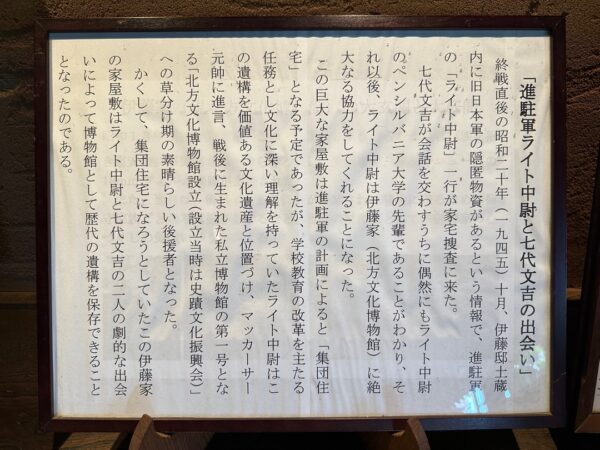 「進駐軍ライト中尉と七代文吉の出会い」
終戦直後の昭和二十年（一九四五）十月、伊藤邸土蔵
内に旧日本軍の隠匿物資があるという情報で、進駐軍
の「ライト中尉」一行が家宅捜査に来た。
七代文吉が会話を交わすうちに偶然にもライト中尉
のペンシルバニア大学の先輩であることがわかり、そ
れ以後、ライト中尉は伊藤家（北方文化博物館）に絶
大なる協力をしてくれることになった。
この巨大な家屋敷は進駐軍の計画によると「集団住
宅」となる予定であったが、学校教育の改革を主たる
任務とし文化に深い理解を持っていたライト中尉はこ
の遺構を価値ある文化遺産と位置づけ、マッカーサー
元帥に進言、戦後に生まれた私立博物館の第一号とな
る「北方文化博物館設立（設立当時は史蹟文化振興会）」
への草分け期の素晴らしい後援者となった。
かくして、集団住宅になろうとしていたこの伊藤家
の家屋敷はライト中尉と七代文吉の二人の劇的な出会
いによって博物館として歴代の遺構を保存できること
となったのである。